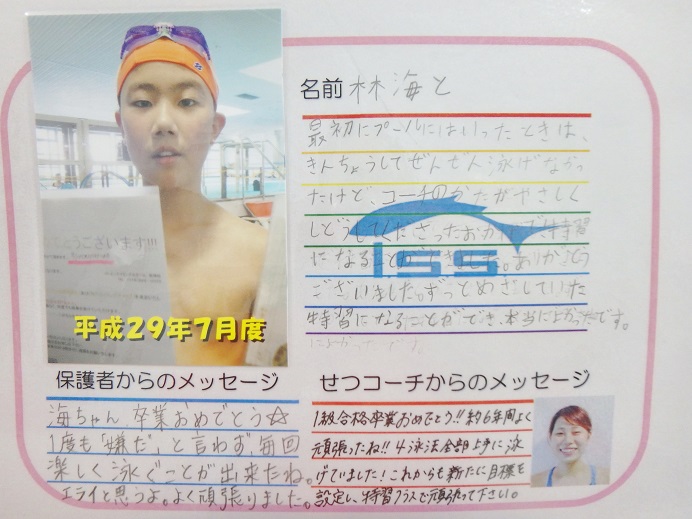 平成29年7月度
名前 林 海と
最初にプールにはいったときは、
きんちょうしてぜんぜん泳げなかっ
たけど、コーチのかたがやさしく
しどうしてくださったおかげで、特習
になることができました。ありがとう
ございました。ずっとめざしていた
特習になることができ、本当によかったです。
によかったです。
ISS
保護者からのメッセージ
海ちゃん、卒業おめでとう☆
1度も「嫌だ」と言わず、毎回
楽しく泳ぐことが出来たね。
エライと思うよ。よく頑張りました。
せつコーチからのメッセージ
1級合格卒業おめでとう!!約6年間よく
頑張ったね!!4泳法全部上手に泳
げていました!これからも新たに目標を
設定し、特習クラスで頑張って下さい。